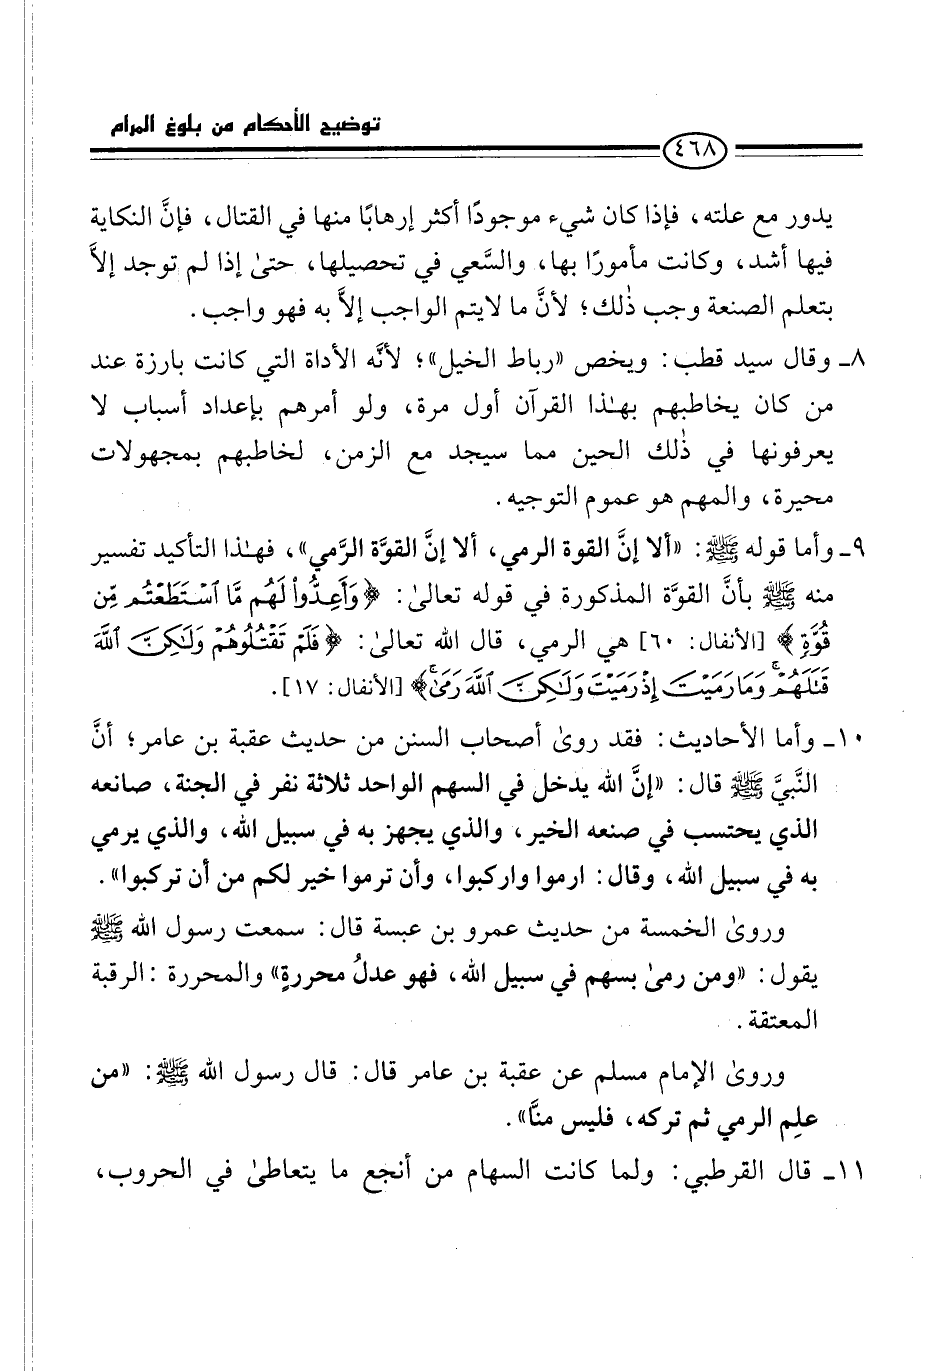 توضيح الأحكام من بلوغ المرام
٤٦٨
يدور مع علته، فإذا كان شيء موجودًا أكثر إرهابًا منها في القتال، فإنَّ النكاية
فيها أشد، وكانت مأمورًا بها، والسَّعي في تحصيلها، حتىٰ إذا لم توجد إلاَّ
بتعلم الصنعة وجب ذٰلك؛ لأنَّ ما لايتم الواجب إلاَّ به فهو واجب.
٨ـ وقال سيد قطب: ويخص «رباط الخيل»؛ لأنَّه الأداة التي كانت بارزة عند
من كان يخاطبهم بهٰذا القرآن أول مرة، ولو أمرهم بإعداد أسباب لا
يعرفونها في ذٰلك الحين مما سيجد مع الزمن، لخاطبهم بمجهولات
محيرة، والمهم هو عموم التوجيه.
٩ـ وأما قوله ﷺ: «ألا إنَّ القوة الرمي، ألا إنَّ القوَّة الرَّمي»، فهٰذا التأكيد تفسير
منه ﷺ بأنَّ القوَّة المذكورة في قوله تعالىٰ: ﴿وَأَعِدُّوا۟ لَهُم مَّا ٱسْتَطَعْتُم مِّن
قُوَّةٍ﴾ [الأنفال: ٦٠] هي الرمي، قال الله تعالىٰ: ﴿فَلَمْ تَقْتُلُوهُمْ وَلَٰكِنَّ ٱللَّهَ
قَتَلَهُمْ ۚ وَمَا رَمَيْتَ إِذْ رَمَيْتَ وَلَٰكِنَّ ٱللَّهَ رَمَىٰ ۚ﴾ [الأنفال: ١٧].
١٠ـ وأما الأحاديث: فقد روىٰ أصحاب السنن من حديث عقبة بن عامر؛ أنَّ
النَّبيَّ ﷺ قال: «إنَّ الله يدخل في السهم الواحد ثلاثة نفر في الجنة، صانعه
الذي يحتسب في صنعه الخير، والذي يجهز به في سبيل الله، والذي يرمي
به في سبيل الله، وقال: ارموا واركبوا، وأن ترموا خير لكم من أن تركبوا».
وروىٰ الخمسة من حديث عمرو بن عبسة قال: سمعت رسول الله ﷺ
يقول: «ومن رمىٰ بسهم في سبيل الله، فهو عدلُ محررةٍ» والمحررة: الرقبة
المعتقة.
وروىٰ الإمام مسلم عن عقبة بن عامر قال: قال رسول الله ﷺ: «من
علِم الرمي ثم تركه، فليس منَّا».
١١ـ قال القرطبي: ولما كانت السهام من أنجع ما يتعاطىٰ في الحروب،